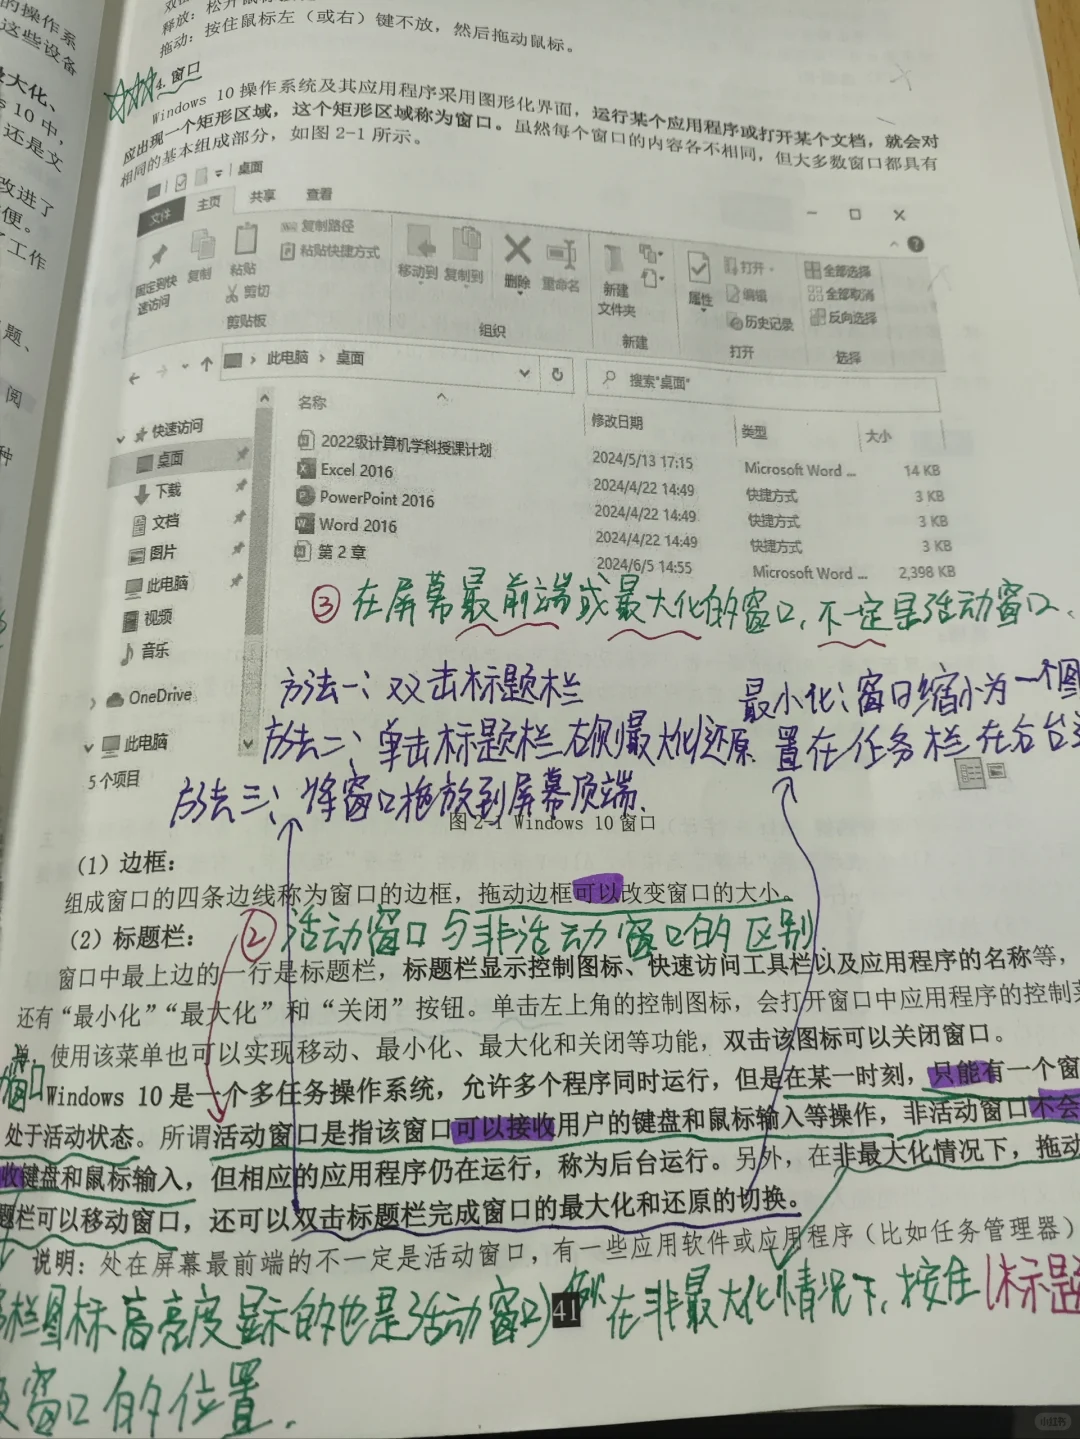 的操作系
这些设备
最大化、
10 中,
还是文
改进了
便。
工作
题、
阅
种
释放:松开鼠标
拖动:按住鼠标左(或右)键不放,然后拖动鼠标。
4. 窗口
Windows 10 操作系统及其应用程序采用图形化界面,运行某个应用程序或打开某个文档,就会对
应出现一个矩形区域,这个矩形区域称为窗口。虽然每个窗口的内容各不相同,但大多数窗口都具有
相同的基本组成部分,如图 2-1 所示。
桌面
文件 主页 共享 查看
固定到快速访问 复制 粘贴 复制路径 粘贴快捷方式 剪切
移动到 复制到 删除 重命名
新建文件夹
属性 打开 编辑 历史记录
全部选择 全部取消 反向选择
剪贴板 组织 新建 打开 选择
此电脑 > 桌面
搜索"桌面"
名称 修改日期 类型 大小
2022级计算机学科授课计划 2024/5/13 17:15 Microsoft Word ... 14 KB
Excel 2016 2024/4/22 14:49 快捷方式 3 KB
PowerPoint 2016 2024/4/22 14:49 快捷方式 3 KB
Word 2016 2024/4/22 14:49 快捷方式 3 KB
第 2 章 2024/6/5 14:55 Microsoft Word ... 2,398 KB
快速访问
桌面
下载
文档
图片
此电脑
视频
音乐
OneDrive
此电脑
5 个项目
③在屏幕最前端或最大化的窗口,不一定是活动窗口、
方法一:双击标题栏
方法二:单击标题栏右侧最大化还原
方法三:将窗口拖放到屏幕顶端.
最小化:窗口缩小为一个图
置在任务栏在后台
图 2-1 Windows 10 窗口
(1)边框:
组成窗口的四条边线称为窗口的边框,拖动边框可以改变窗口的大小。
(2)标题栏:
②活动窗口与非活动窗口的区别
窗口中最上边的一行是标题栏,标题栏显示控制图标、快速访问工具栏以及应用程序的名称等,
还有“最小化”“最大化”和“关闭”按钮。单击左上角的控制图标,会打开窗口中应用程序的控制菜
单,使用该菜单也可以实现移动、最小化、最大化和关闭等功能,双击该图标可以关闭窗口。
窗口
Windows 10 是一个多任务操作系统,允许多个程序同时运行,但是在某一时刻,只能有一个窗
处于活动状态。所谓活动窗口是指该窗口可以接收用户的键盘和鼠标输入等操作,非活动窗口不会
收键盘和鼠标输入,但相应的应用程序仍在运行,称为后台运行。另外,在非最大化情况下,拖动
题栏可以移动窗口,还可以双击标题栏完成窗口的最大化和还原的切换。
说明:处在屏幕最前端的不一定是活动窗口,有一些应用软件或应用程序(比如任务管理器)
栏图标高亮度显示的也是活动窗口)
41
在非最大化情况下,按住标题
窗口的位置.
小红书